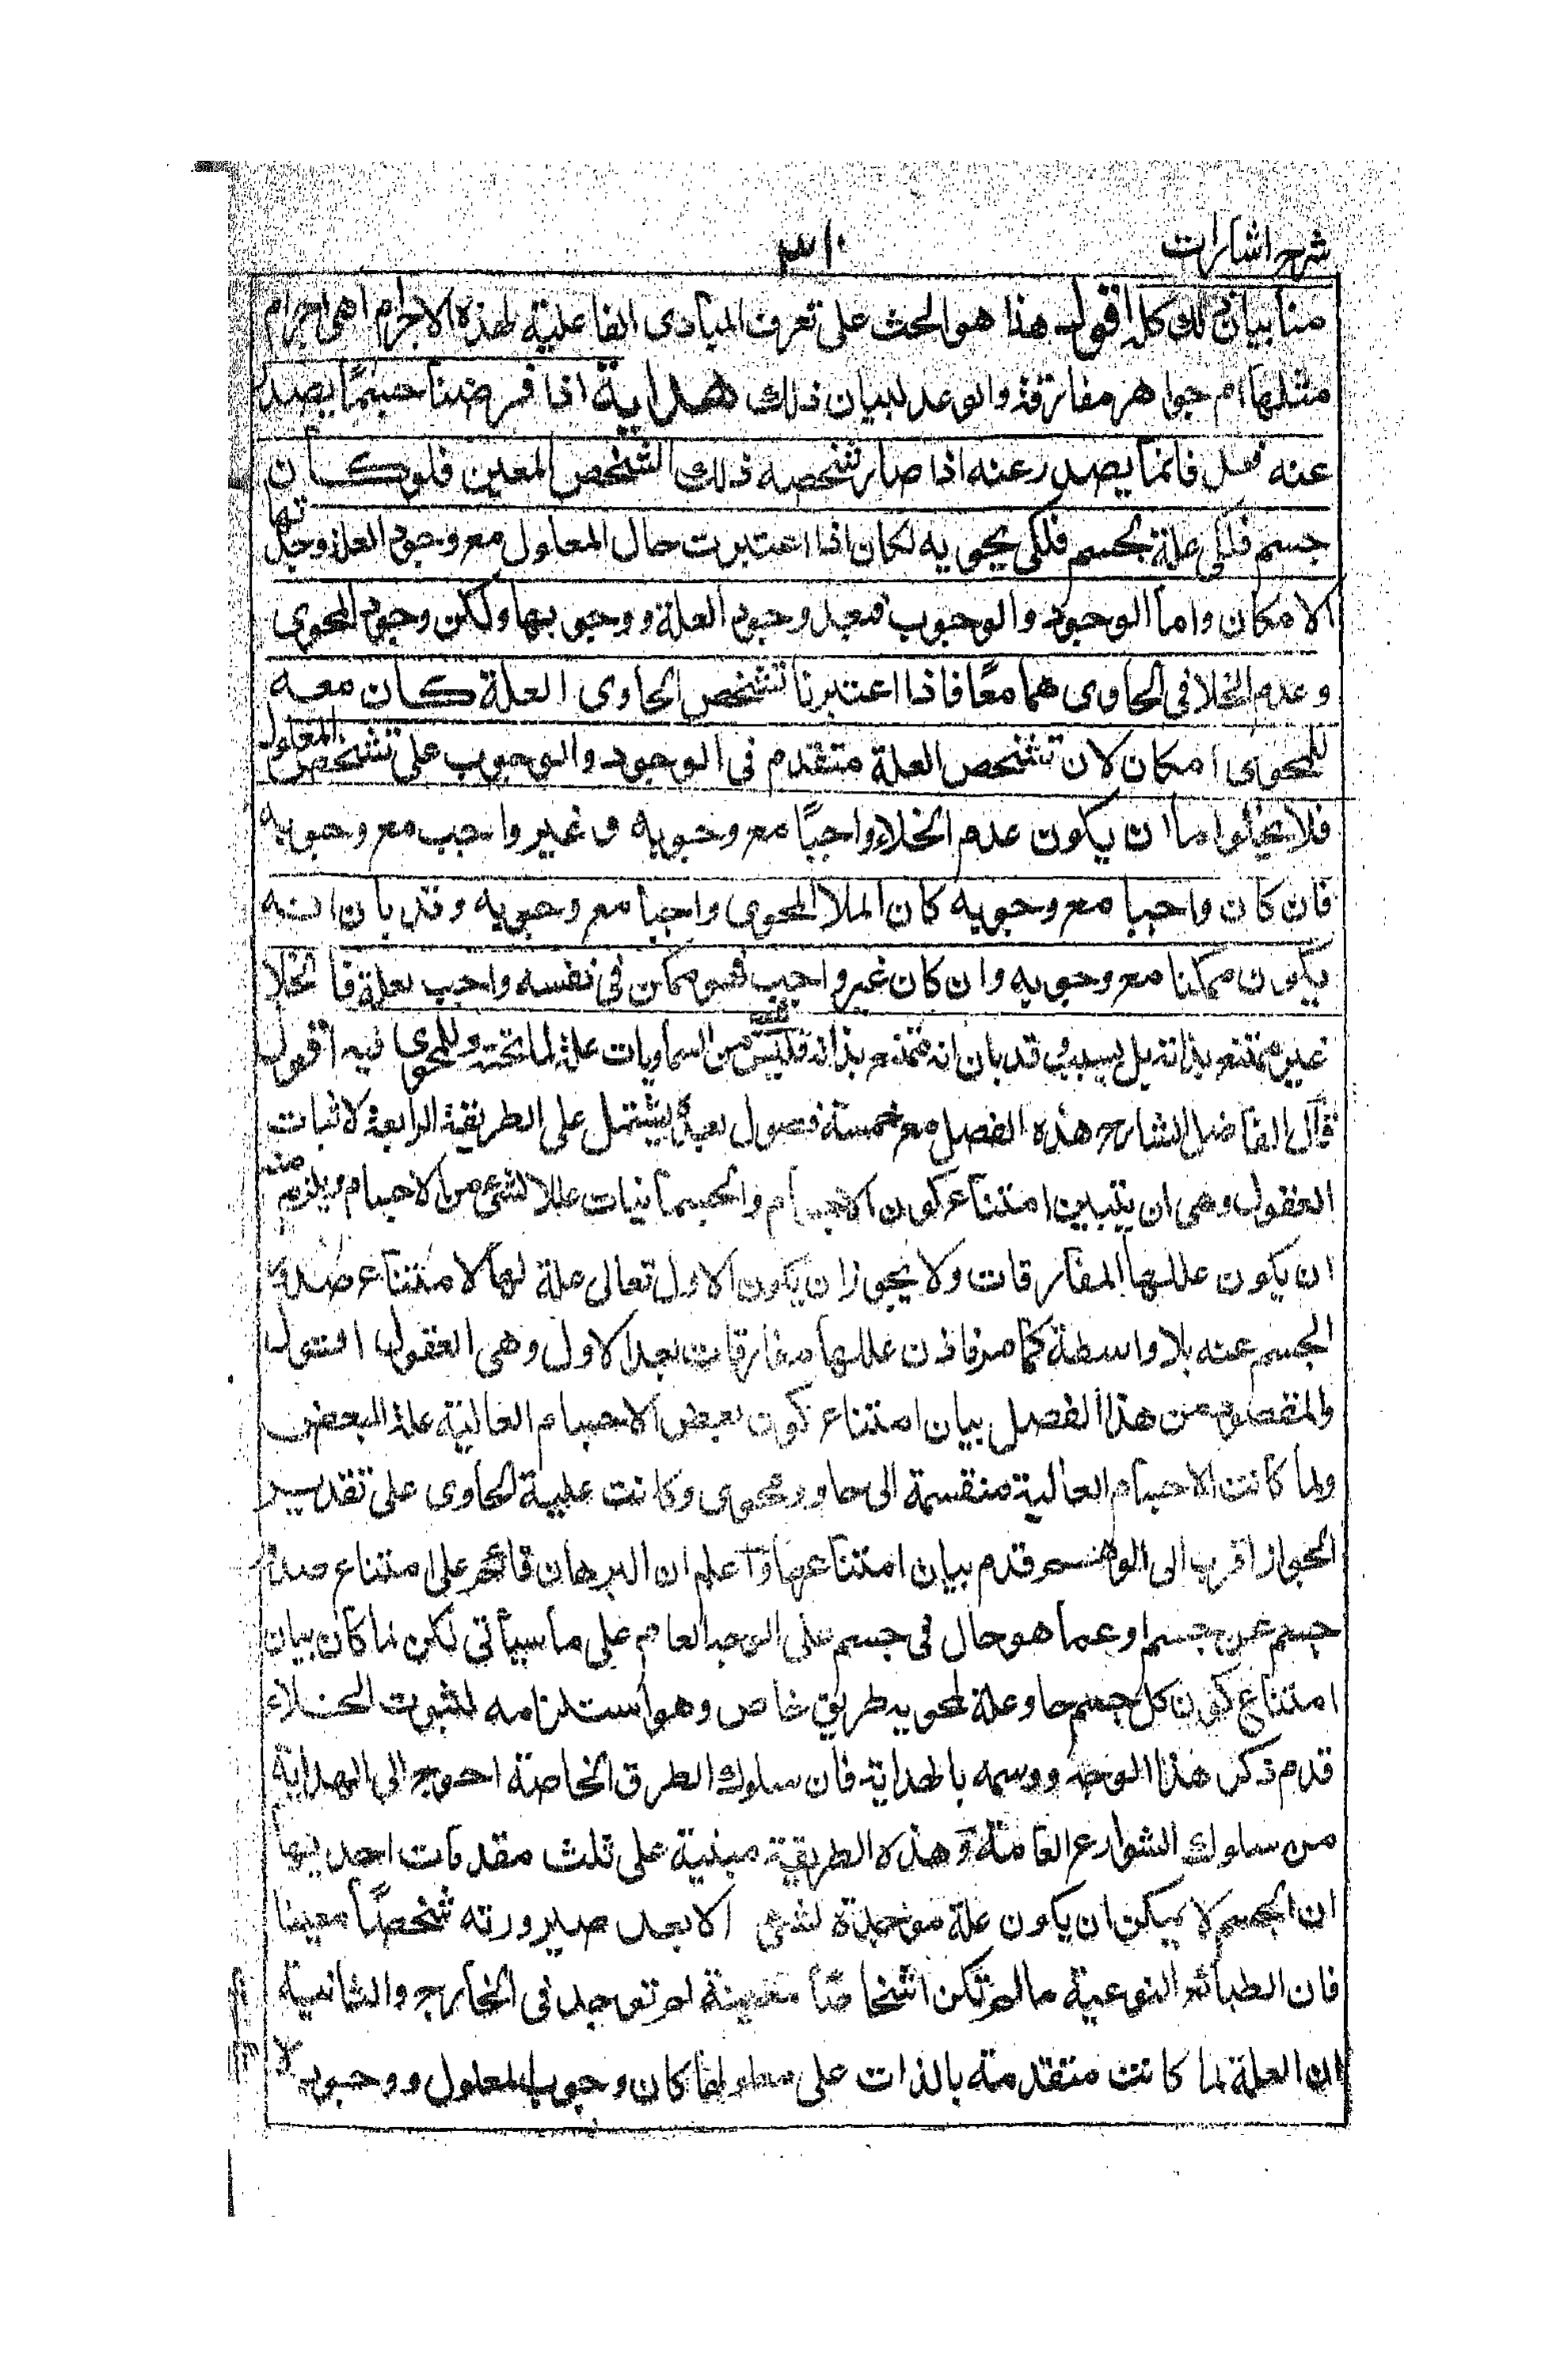 شرح اشارات
٣١٠
منا بيان ذلك كله اقول هذا هو الحث على تعرف المبادى الفاعلية لهذه الاجرام اهى اجرام
مثلها ام جواهر مفارقة والوعد لبيان ذلك هداية اذا فرضنا جسمًا يصدر
عنه فعل فانما يصدر عنه اذا صار شخصه ذلك الشخص المعين فلو كان
جسم فلكى علة لجسم فلكى يحويه لكان اذا اعتبرت حال المعلول مع وجود العلة وجدتها
الامكان واما الوجود والوجوب فبعد وجود العلة ووجوبها ولكن وجود المحوى
وعدم الخلا فى الحاوى هما معًا فاذا اعتبرنا تشخص الحاوى العلة كان معه
للمحوى امكان لان تشخص العلة متقدم فى الوجود والوجوب على تشخص المعلول
فلا يخلوا ما ان يكون عدم الخلاء واجبًا مع وجوبه او غير واجب مع وجوبه
فان كان واجبا مع وجوبه كان الملا المحوى واجبا مع وجوبه وقد بان انه
يكون ممكنا مع وجوبه وان كان غير واجب فهو ممكن فى نفسه واجب بعلة فالخلا
غير ممتنع بذاته بل بسبب وقد بان انه ممتنع بذاته فليس من السماويات علة لما تحته وللمحوى فيه اقول
قال الفاضل الشارح هذه الفصل مع خمسة فصول بعده يشتمل على الطريقة الرابعة لاثبات
العقول وهى ان يتبين امتناع كون الاجسام والجسمانيات عللا لشىء من الاجسام ويلزم منه
ان يكون عللها المفارقات ولا يجوز ان يكون الاول تعالى علة لها لامتناع صدور
الجسم عنه بلا واسطة كما مر فاذن عللها مفارقات بعد الاول وهى العقول اقول
والمقصود من هذا الفصل بيان امتناع كون بعض الاجسام العالية علة لبعض
ولما كانت الاجسام العالية منقسمة الى حاو ومحوى وكانت علية الحاوى على تقدير
الجواز اقرب الى الوهم قدم بيان امتناعها واعلم ان البرهان قائم على امتناع صدور
جسم عن جسم او عما هو حال فى جسم على الوجه العام على ما سيأتى لكن لما كان بيان
امتناع كون كل جسم حاو علة لمحويه طريق خاص وهو استلزامه لثبوت الخلاء
قدم ذكر هذا الوجه ووسمه بالهداية فان سلوك الطرق الخاصة احوج الى الهداية
من سلوك الشوارع العامة وهذه الطريقة مبنية على ثلث مقدمات احديها
ان الجسم لا يمكن ان يكون علة موجدة لشىء الا بعد صيرورته شخصًا معينا
فان الطبائع النوعية ما لم تكن اشخاصًا معينة لم توجد فى الخارج والثانية
ان العلة لما كانت متقدمة بالذات على معلولها كان وجوب المعلول ووجوده لا